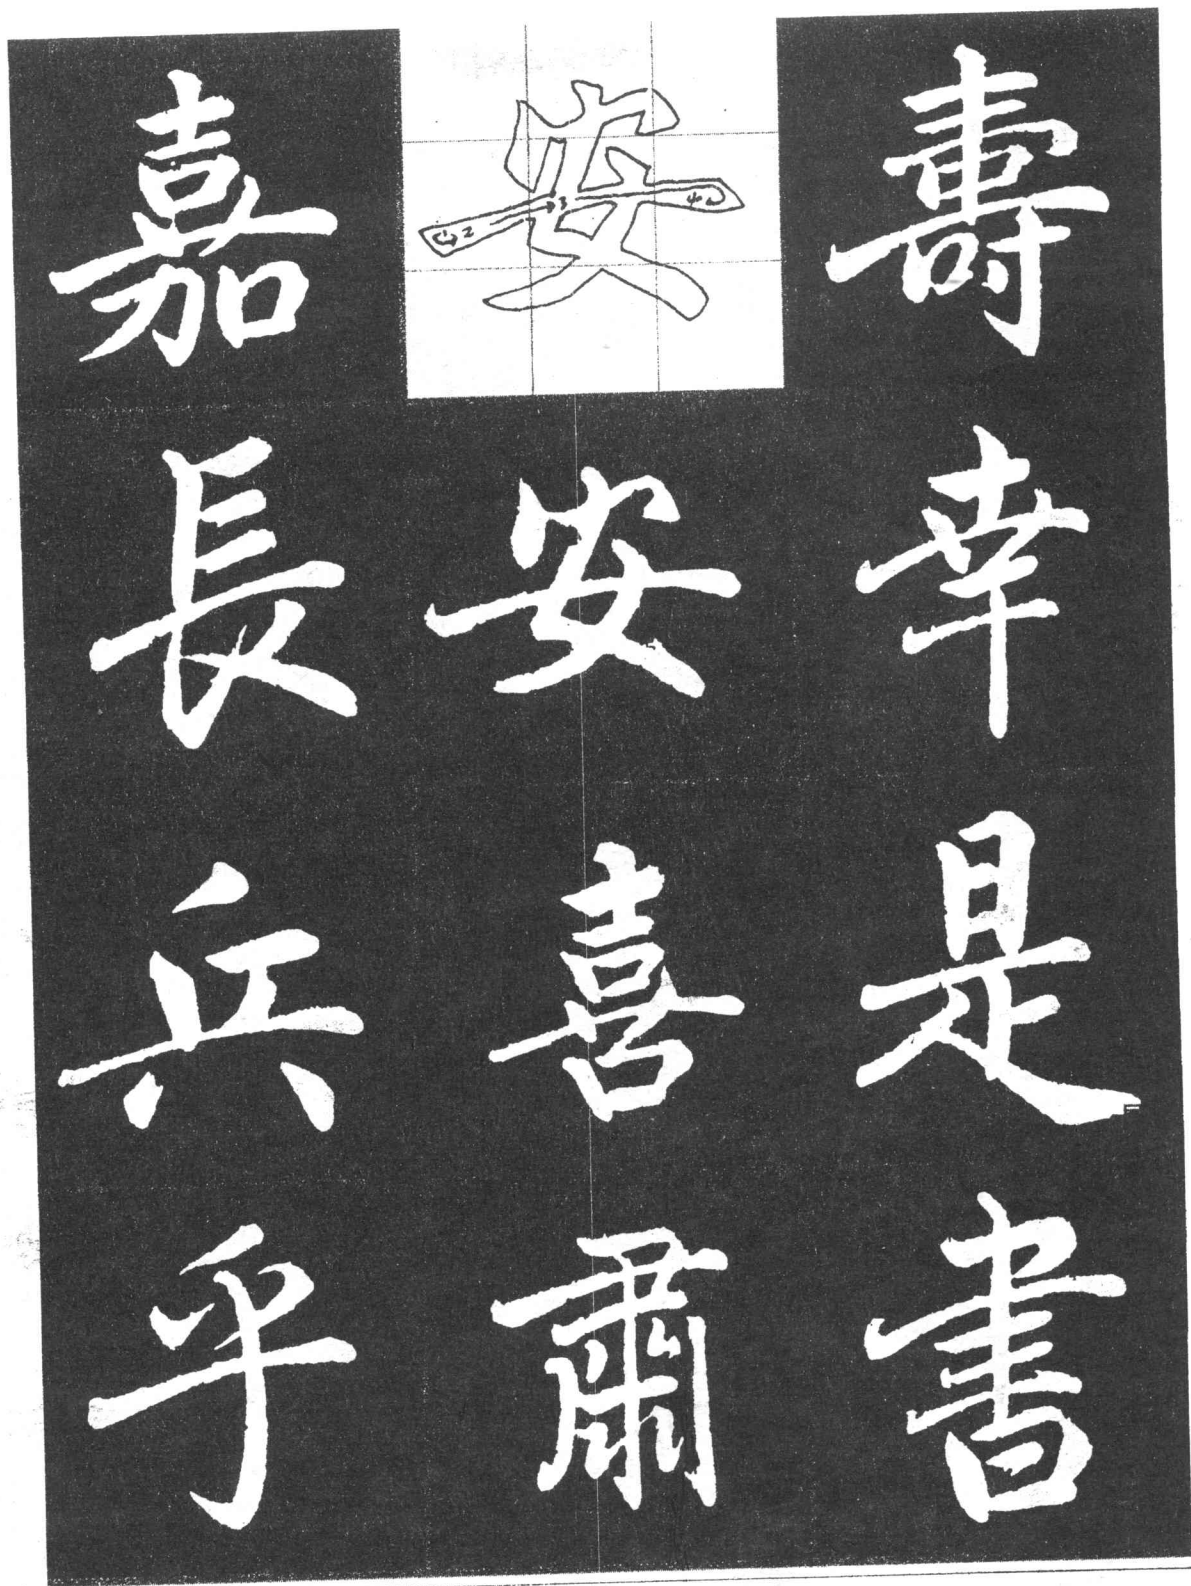 壽幸是書
安安喜肅
嘉長兵乎